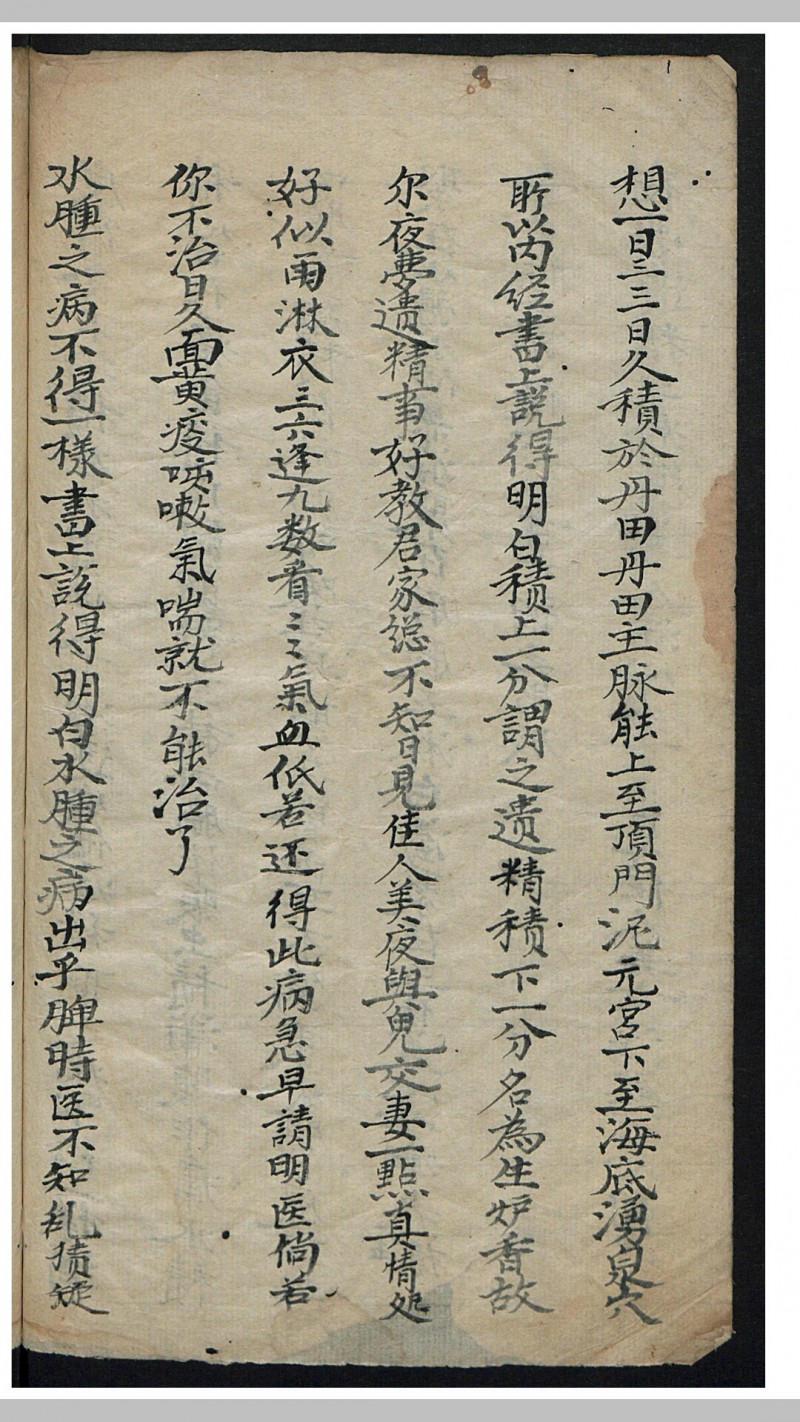 想一日三三日久積於丹田丹田主脉能上至頂門泥元宮下至海底湧泉穴
所以芮経書上說得明白積上一分謂之遗精積下一分名為生炉香故
尔夜夢遗精事好教君家総不知日見佳人美夜與鬼交妻一點真情処
好似雨淋衣三六逢九数看〻三氣血低若还得此病急早請明医倘若
你不治日久面黄痠咳嗽氣喘就不能治了
水腫之病不得一樣書上說得明白水腫之病出乎脾時医不知乱猜疑